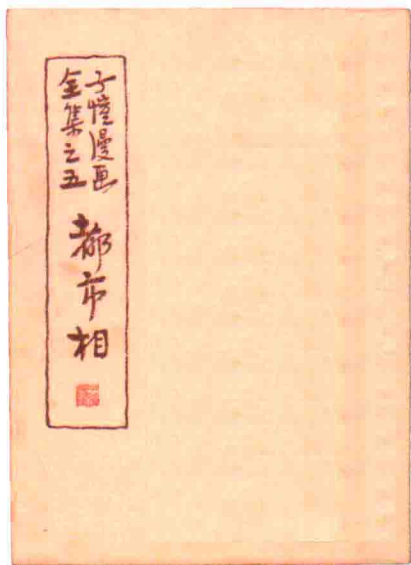 子愷漫画
全集之五
都市相